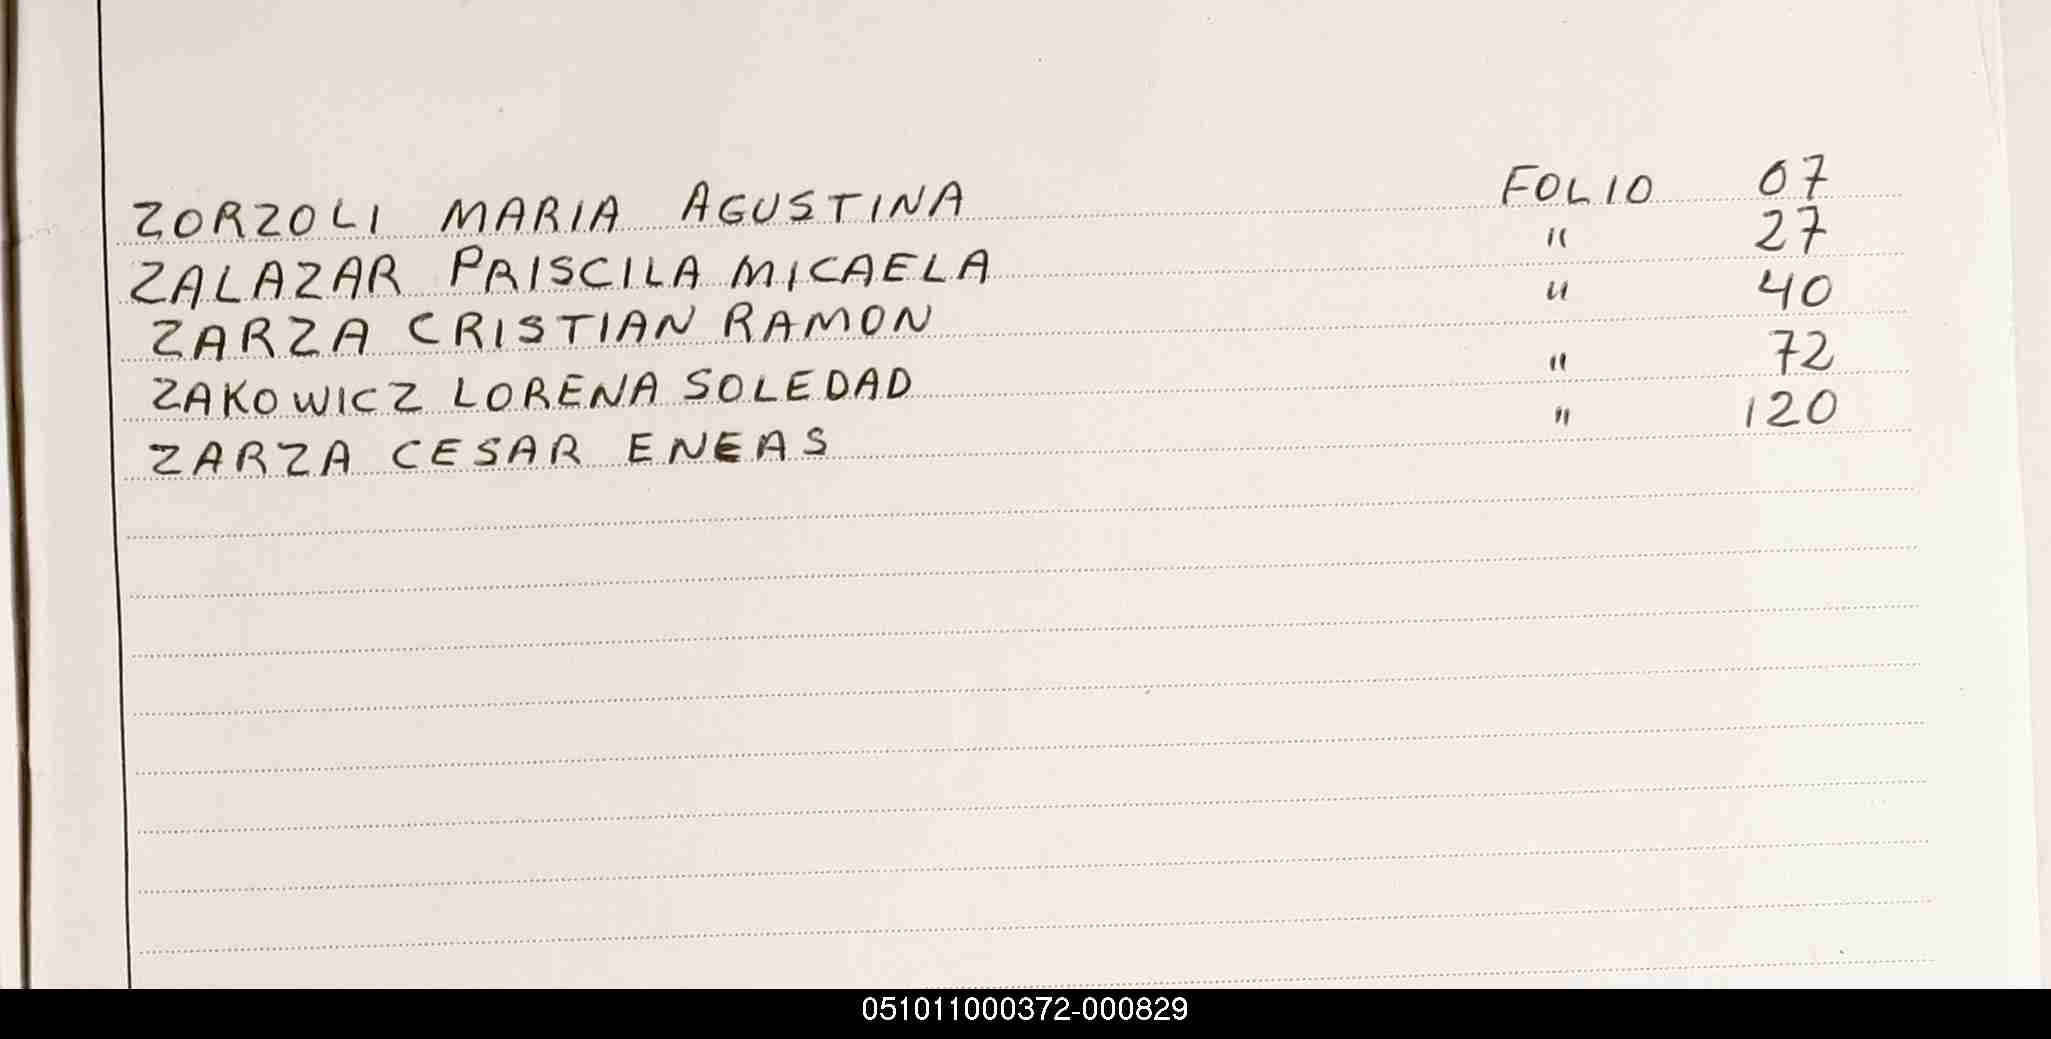 ZORZOLI MARIA AGUSTINA FOLIO 07
ZALAZAR PRISCILA MICAELA " 27
ZARZA CRISTIAN RAMON " 40
ZAKOWICZ LORENA SOLEDAD " 72
ZARZA CESAR ENEAS " 120
051011000372-000829